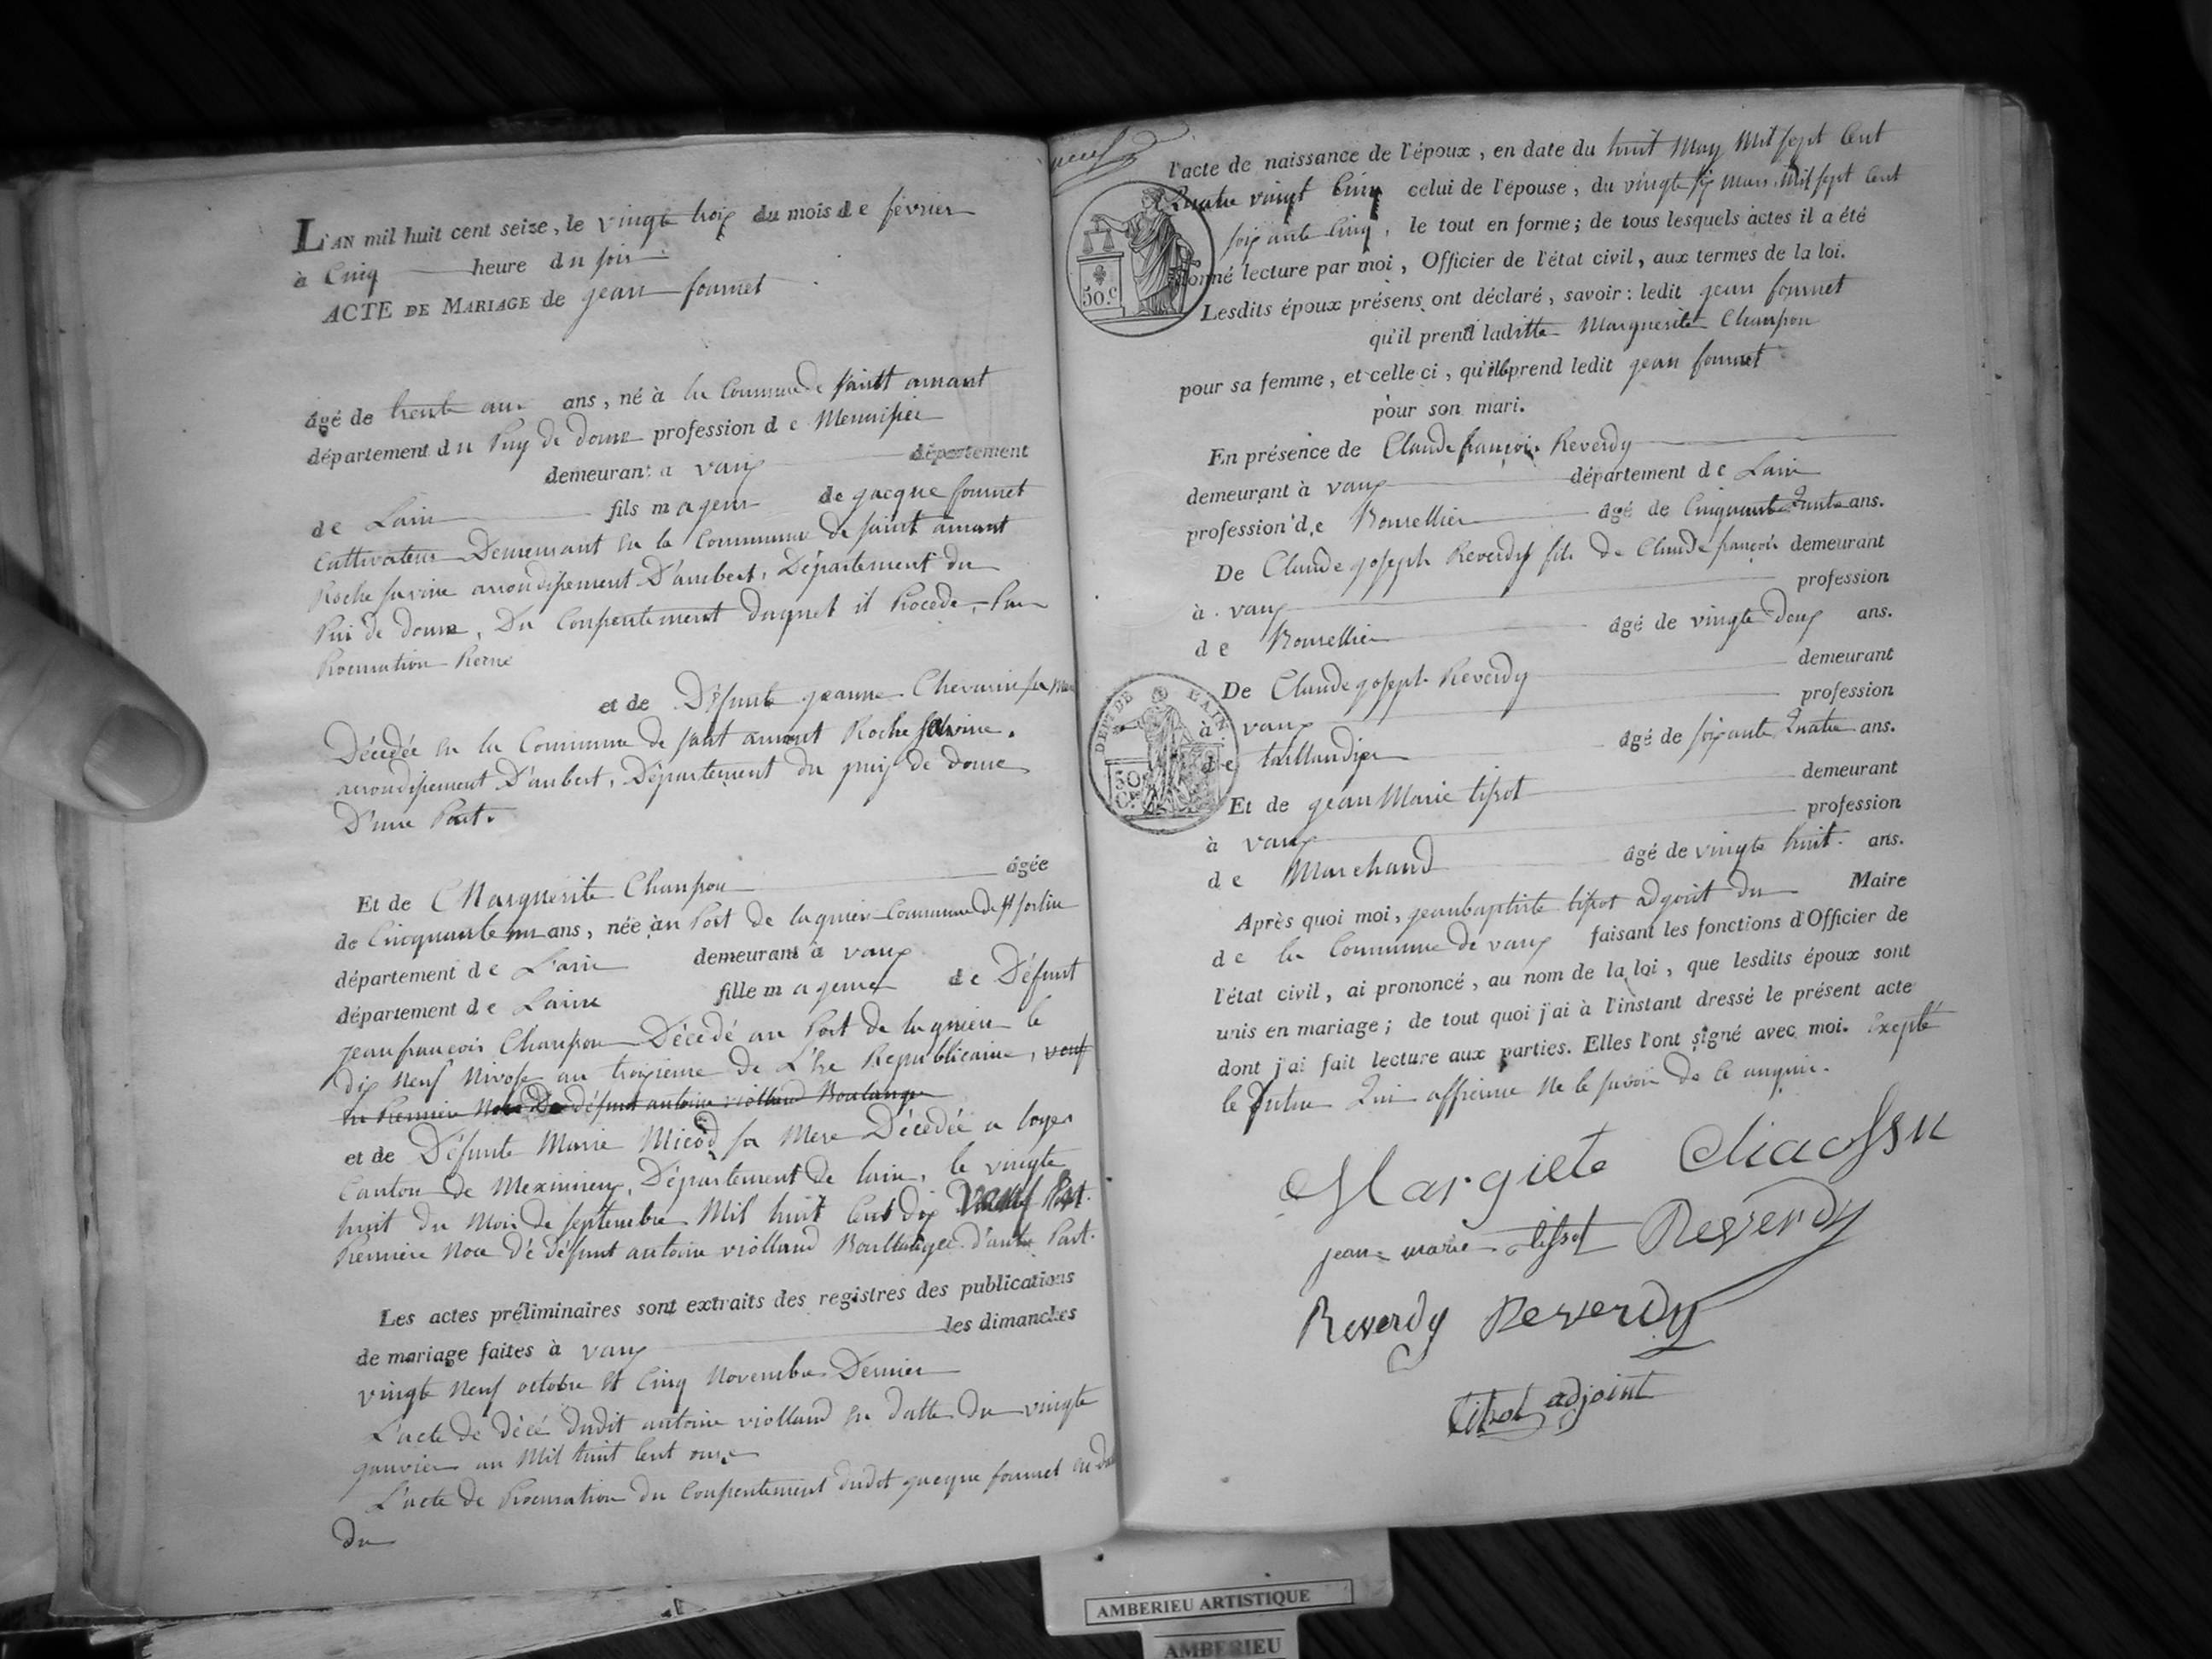 L'AN mil huit cent seize, le vingt trois du mois de février
à Cinq heure du soir
ACTE DE MARIAGE de jean fournet
âgé de trente ans, né à la Commune de saint amant
département du Puy de dome profession de Menuisier
demeurant à vaux département
de Lain fils mageur de jacque fournet
Cultivateur Demeurant en la Commune de saint amant
Roche savine arrondissement D'ambert, Département du
Pui de dome, Du Consentement duquel il Procede, par
Procuration
et de Défunte jeanne sa Mere
Décédée en la Commune de saint amant Roche Savine.
arrondissement D'ambert, Département du puy de dome
D'une Part.
Et de Marguerite Chanson âgée
de Cinquante un ans, née au Port de lagnieu Commune de st sorlin
département de L'ain demeurant à vaux
département de Laine fille mageure de Défunt
jeanfrancois Chanson Décédé au Port de lagnieu le
dix Neuf Nivose an troisieme de L'Ere Republicaine, veuf
en Premiere Noce De défunt antoine violland Boulanger
et de Défunte Marie Micod sa Mere Décédée a loyes
Canton de Meximieux, Département de lain, le vingte
huit du Mois de septembre Mil huit Cent dix
Premiere Noce de défunt antoine violland Boullanger d'autre Part.
Les actes préliminaires sont extraits des registres des publications
de mariage faites à vaux les dimanches
vingte Neuf octobre et Cinq Novembre Dernier
L'acte de décé dudit antoine violland en datte du vingte
janvier an Mil huit Cent onze
L'acte de Procuration du Consentement dudit jacque fournet en date
du
l'acte de naissance de l'époux, en date du huit May Mil sept Cent
Quatre vingt Cinq celui de l'épouse, du vingte six Mars Mil sept Cent
soixante Cinq, le tout en forme; de tous lesquels actes il a été
donné lecture par moi, Officier de l'état civil, aux termes de la loi.
50.c
Lesdits époux présens ont déclaré, savoir: ledit jean fournet
qu'il prend laditte Marguerite Chanson
pour sa femme, et celle ci, qu'elle prend ledit jean fournet
pour son mari.
En présence de Claude françois Reverdy
demeurant à vaux département de Lain
profession de Bourellier âgé de Cinquante Quatre ans.
De Claude joseph Reverdy fils de Claude françois demeurant
à vaux profession
de Bourellier âgé de vingte deux ans.
De Claude joseph Reverdy demeurant
DEPt DE L'AIN
50 Ce
à vaux profession
de taillandier âgé de soixante Quatre ans.
Et de jean Marie tissot demeurant
à vaux profession
de Marchand âgé de vingte huit ans.
Après quoi moi, jeanbaptiste tissot adjoit du Maire
de la Commune de vaux faisant les fonctions d'Officier de
l'état civil, ai prononcé, au nom de la loi, que lesdits époux sont
unis en mariage; de tout quoi j'ai à l'instant dressé le présent acte
dont j'ai fait lecture aux parties. Elles l'ont signé avec moi. Excepté
le futur Qui affirme Ne le savoir de ce
Margiete
jean marie tissot Reverdy
Reverdy Reverdy
tissot adjoint
AMBERIEU ARTISTIQUE
AMBERIEU